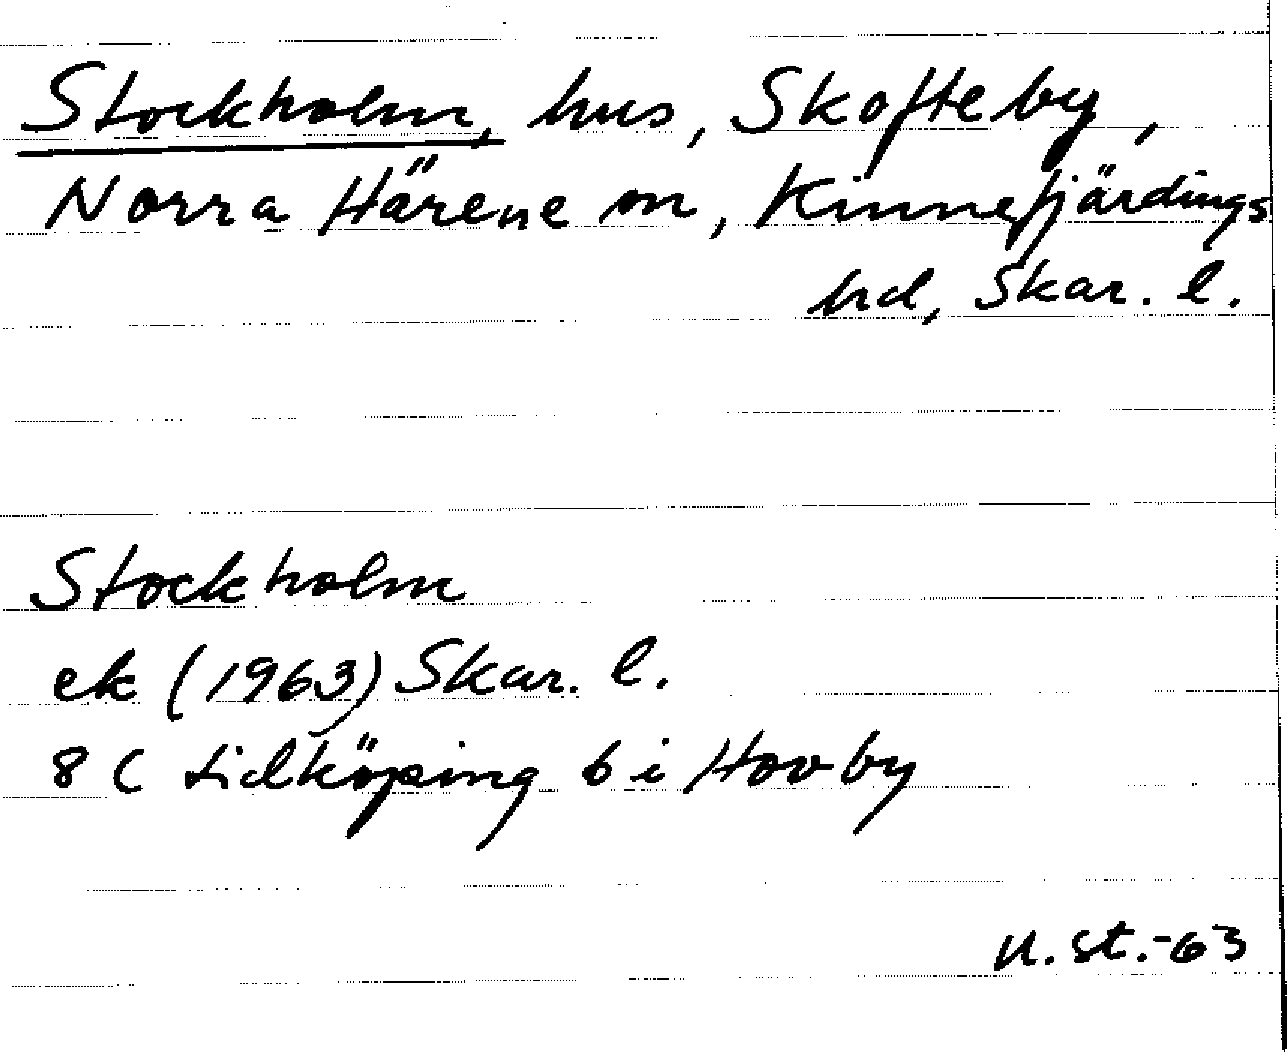 Stockholm, hus, Skofteby,
Norra Härene sn, Kinnefjärdings
hd, Skar. l.
Stockholm
ek (1963) Skar. l.
8 C Lidköping 6 i Hovby
U. St. -63